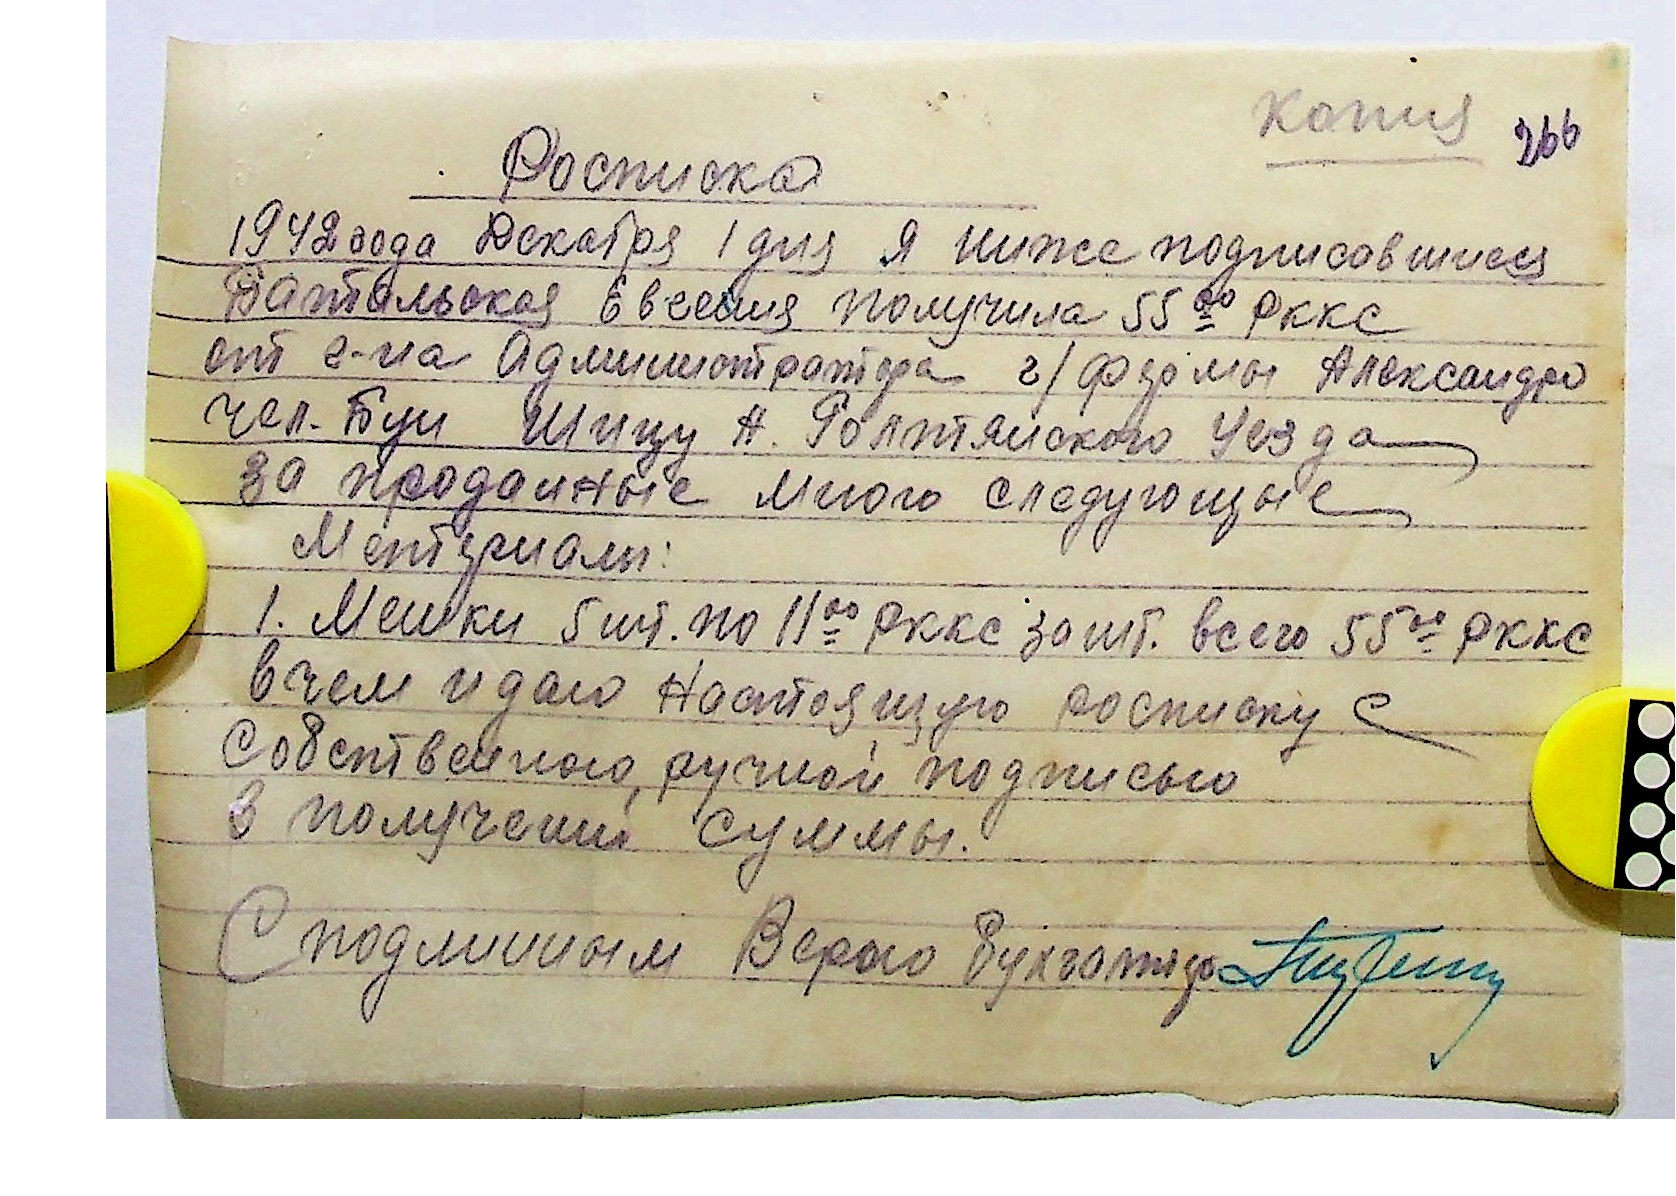 Копия 266
Росписка
1942 года Декабря 1 дня Я ниже подписовшиеся
Евгения получила 55 00 РККС
от г-на Администратора г/фермы Александро
чел. Буи Шицу Н. Голтянского Уезда
за проданные мною следующые
Материалы:
1. Мешки 5 шт. по 11 00 РККС за шт. всего 55 00 РККС
в чем и даю настоящую росписку с
Собственною, ручной подписью
в получений суммы.
С подлинным Верно Бухгалтер